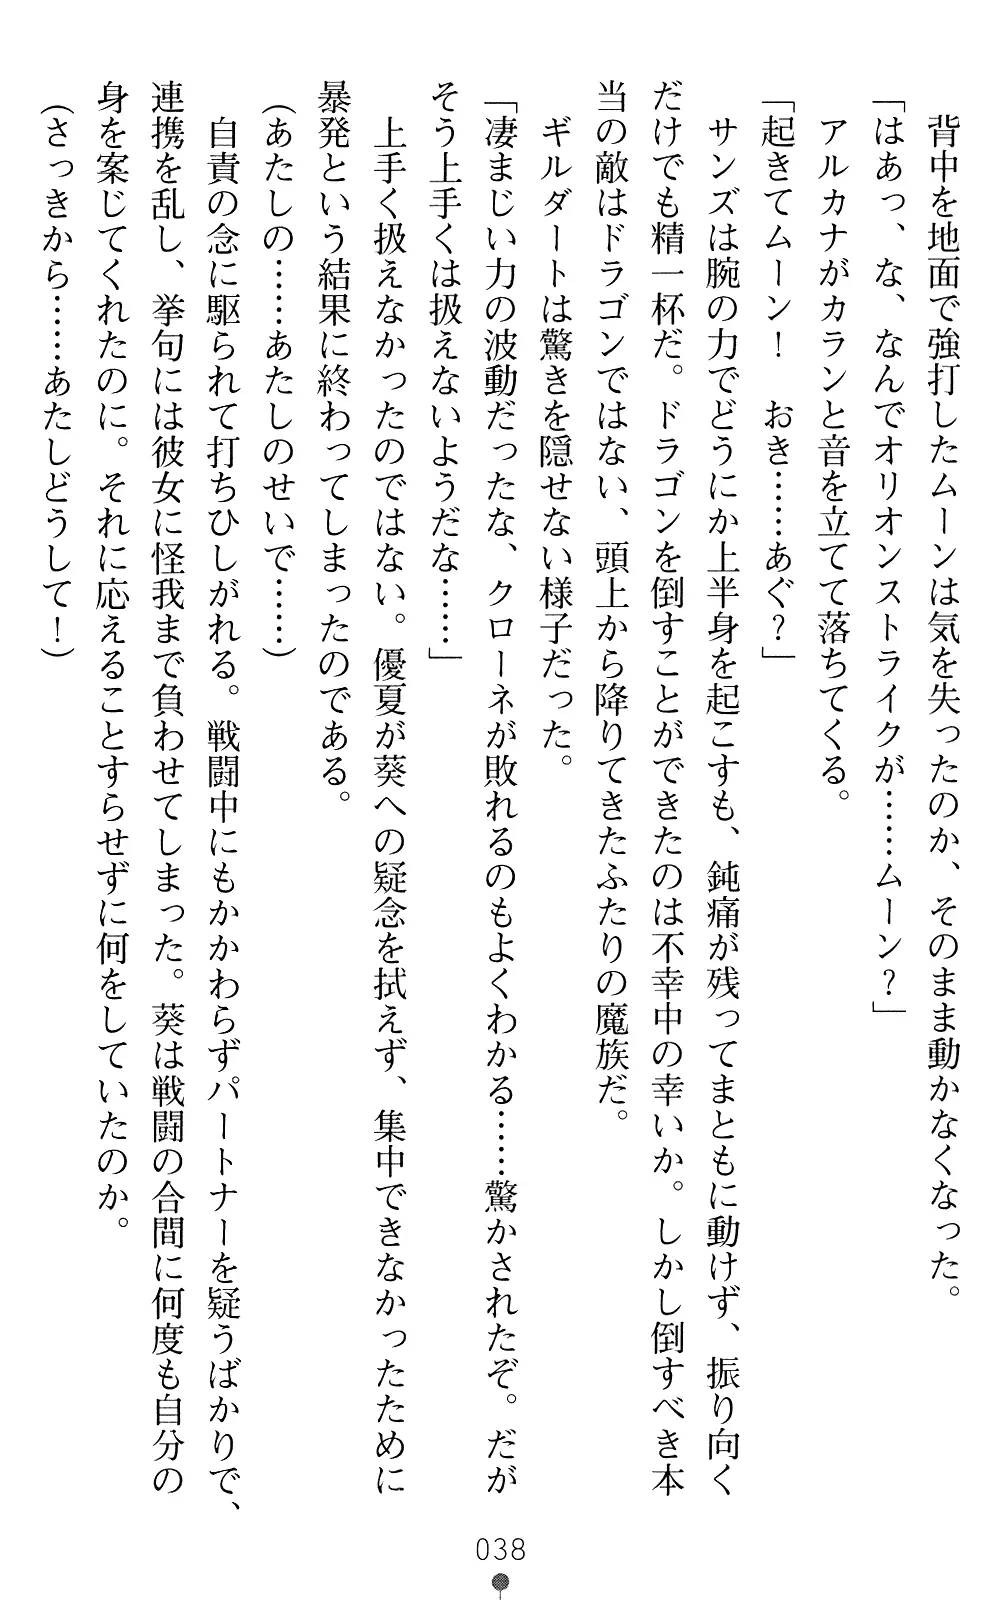 背中を地面で強打したムーンは気を失ったのか、そのまま動かなくなった。
「はあっ、な、なんでオリオンストライクが……ムーン？」
　アルカナがカランと音を立てて落ちてくる。
「起きてムーン！　おき……あぐ？」
　サンズは腕の力でどうにか上半身を起こすも、鈍痛が残ってまともに動けず、振り向く
だけでも精一杯だ。ドラゴンを倒すことができたのは不幸中の幸いか。しかし倒すべき本
当の敵はドラゴンではない、頭上から降りてきたふたりの魔族だ。
　ギルダートは驚きを隠せない様子だった。
「凄まじい力の波動だったな、クローネが敗れるのもよくわかる……驚かされたぞ。だが
そう上手くは扱えないようだな……」
　上手く扱えなかったのではない。優夏が葵への疑念を拭えず、集中できなかったために
暴発という結果に終わってしまったのである。
（あたしの……あたしのせいで……）
　自責の念に駆られて打ちひしがれる。戦闘中にもかかわらずパートナーを疑うばかりで、
連携を乱し、挙句には彼女に怪我まで負わせてしまった。葵は戦闘の合間に何度も自分の
身を案じてくれたのに。それに応えることすらせずに何をしていたのか。
（さっきから……あたしどうして！）
038